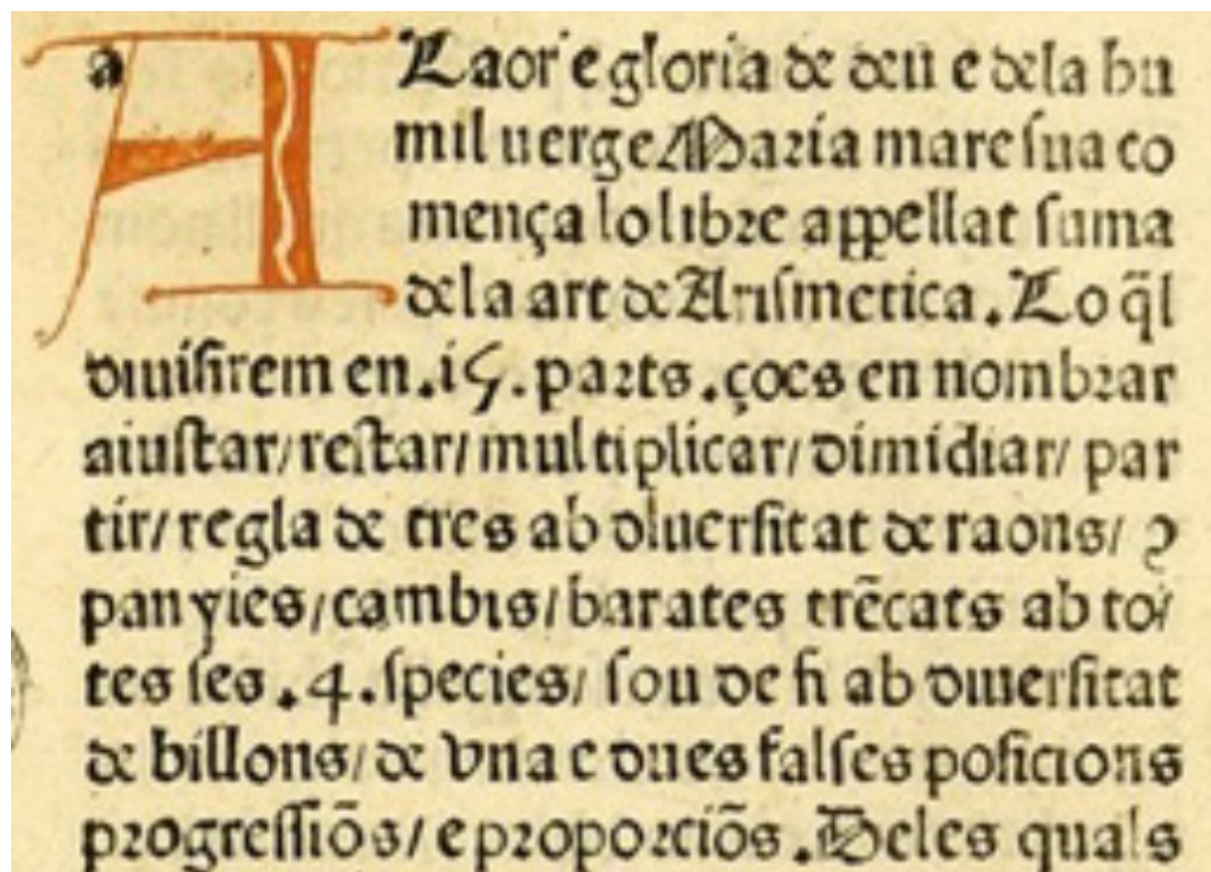 A Laor e gloria de deu e dela hu
mil uerge Maria mare sua co
mença lo libre appellat suma
dela art de Arismetica. Lo q̃l
diuisirem en .i5. parts. çoes en nombrar
aiustar/ restar/ multiplicar/ dimidiar/ par
tir/ regla de tres ab diuersitat de raons/ ꝯ
panyies/ cambis/ barates trẽcats ab to/
tes ses .4. species/ sou de fi ab diuersitat
de billons/ de vna e dues falses posicions
progressiõs/ e proporciõs. Deles quals